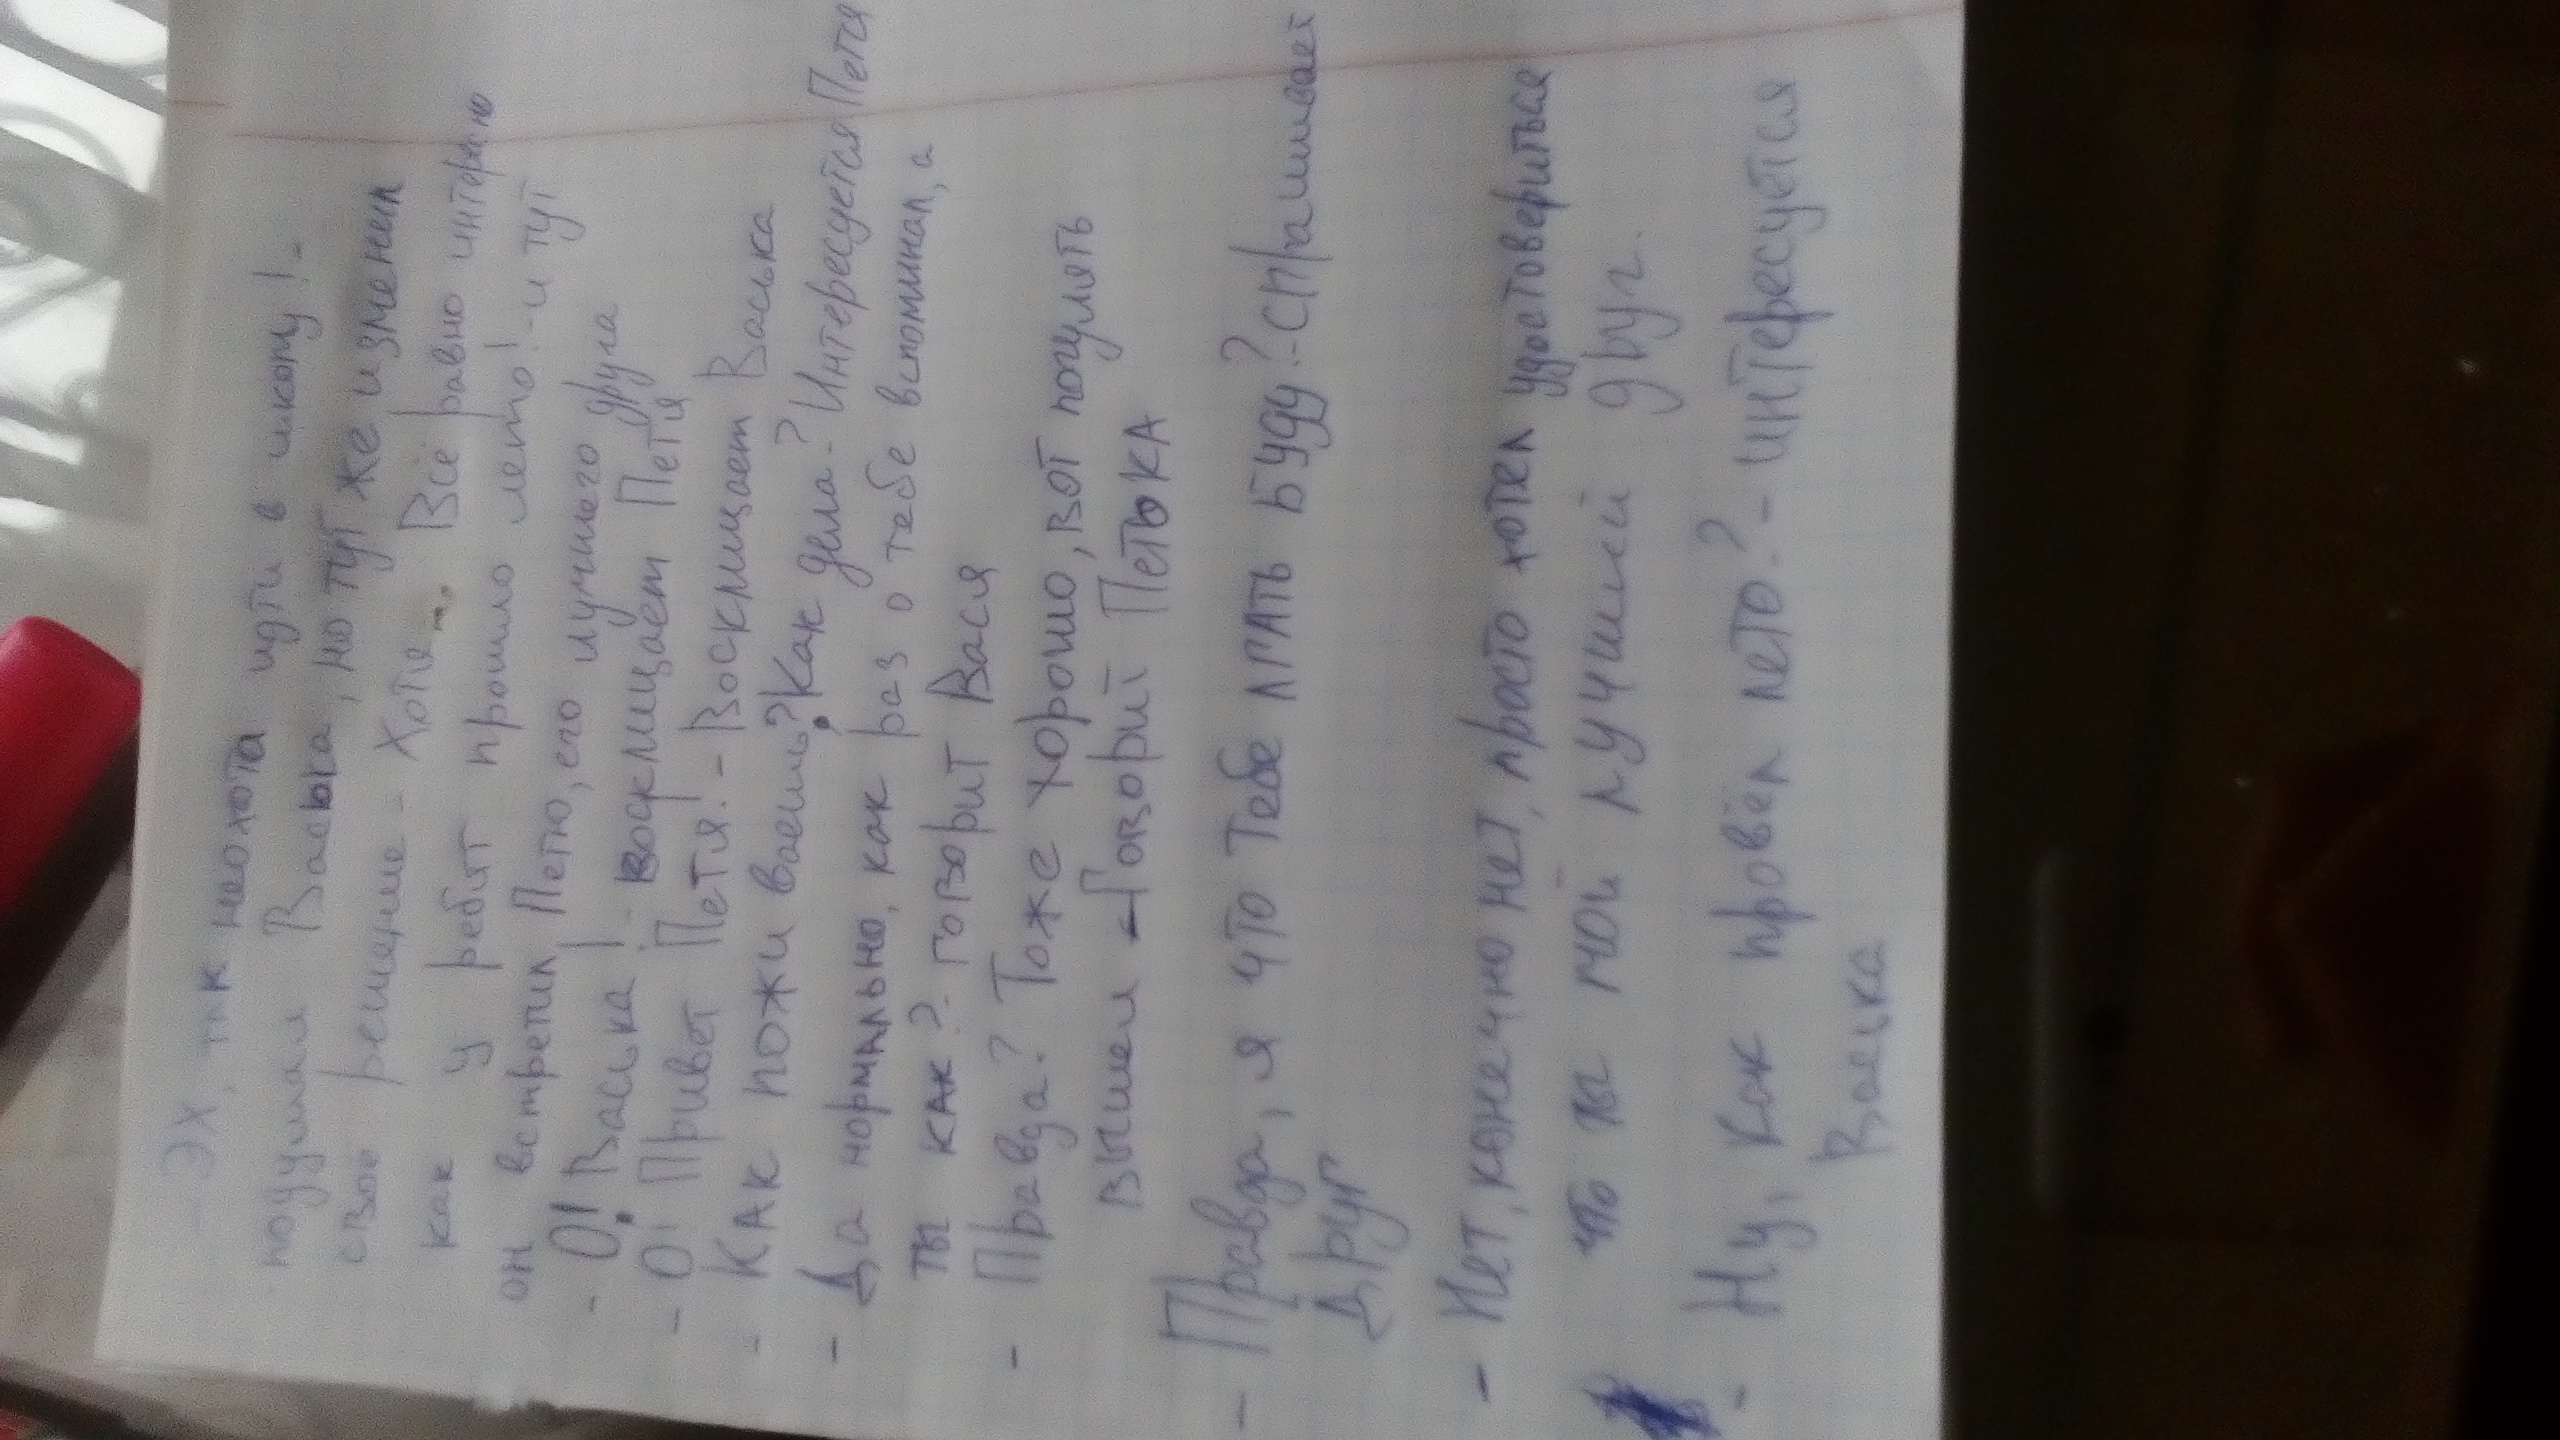 - Эх, так неохота идти в школу! -
подумал Васька, но тут же изменил
своё решение - Хотя... Всё равно интересно
как у ребят прошло лето! - и тут
он встретил Петю, его лучшего друга
- О! Васька! - воскмицает Петя
- О! Привет Петя! - Воскмицает Васька
- Как поживаешь? Как дела? Интересуется Петя
- Да нормально, как раз о тебе вспоминал, а
ты как? - говорит Вася
- Правда? Тоже хорошо, вот погулять
вышел - Говорит Петька
- Правда, я что тебе лгать буду? - спрашивает
друг
- Нет, конечно нет, просто хотел удостовериться
что ты мой лучший друг.
- Ну, как провёл лето? - интересуется
Васька